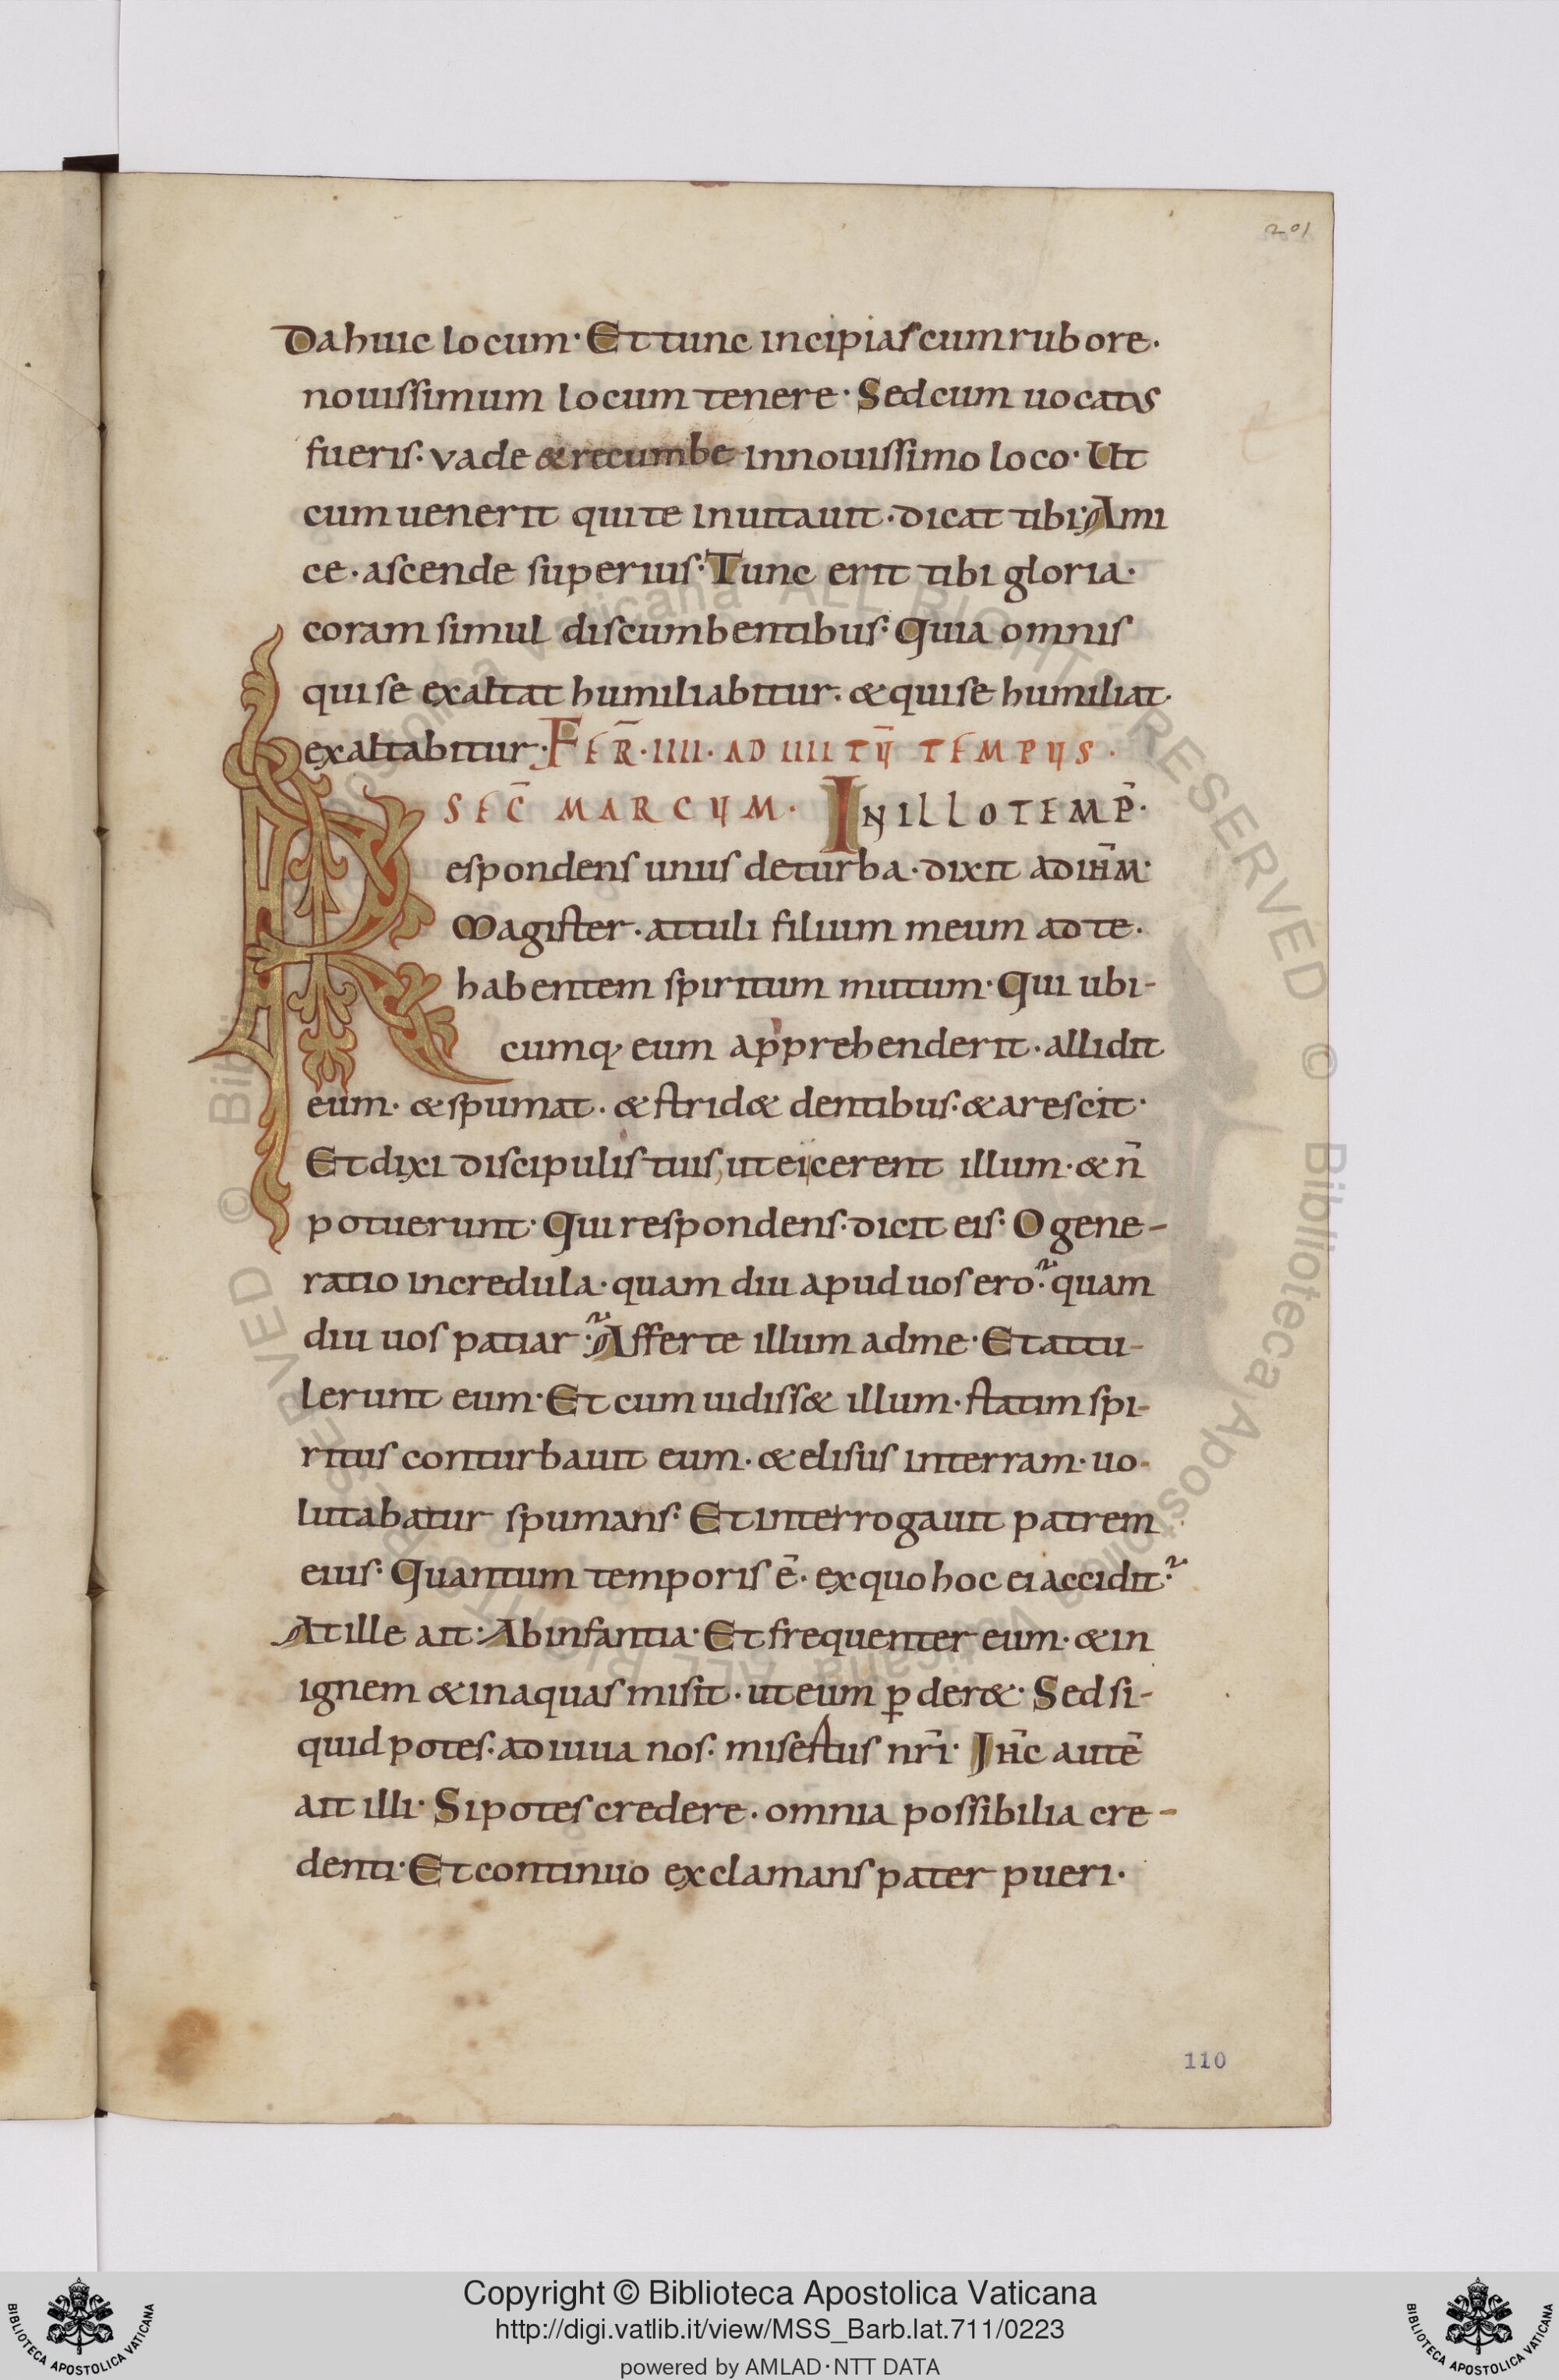 201
Da huic locum· Et tunc incipias cum rubore·
nouissimum locum tenere· Sed cum uocatus
fueris· vade & recumbe in nouissimo loco· Ut
cum uenerit qui te inuitauit· dicat tibi· Ami
ce· ascende superius· Tunc erit tibi gloria·
coram simul discumbentibus· Quia omnis
qui se exaltat humiliabitur· & qui se humiliat·
exaltabitur· FER̄· IIII· AD IIII TŪ TEMPUS·
SEC̄ MARCUM· IN ILLO TEMP̄·
Respondens unus de turba· dixit ad ih̄m·
Magister· attuli filium meum ad te·
habentem spiritum mutum· Qui ubi-
cumq; eum apprehenderit· allidit
eum· & spumat· & strid& dentibus· & arescit·
Et dixi discipulis tuis, ut eicerent illum· & n̄
potuerunt· Qui respondens· dicit eis· O gene-
ratio incredula· quam diu apud uos ero? quam
diu uos patiar? Afferte illum ad me· Et attu-
lerunt eum· Et cum uidiss& illum· statim spi-
ritus conturbauit eum· & elisus in terram· uo-
lutabatur spumans· Et interrogauit patrem
eius· Quantum temporis ē· ex quo hoc ei accidit?
At ille ait· Ab infantia· Et frequenter eum· & in
ignem & in aquas misit· ut eum ꝑder&· Sed si-
quid potes· adiuua nos· misertus nr̄i· Ih̄c autē
ait illi· Si potes credere· omnia possibilia cre-
denti· Et continuo exclamans pater pueri·
110
Copyright © Biblioteca Apostolica Vaticana
http://digi.vatlib.it/view/MSS_Barb.lat.711/0223
powered by AMLAD·NTT DATA
BIBLIOTECA APOSTOLICA VATICANA
BIBLIOTECA APOSTOLICA VATICANA